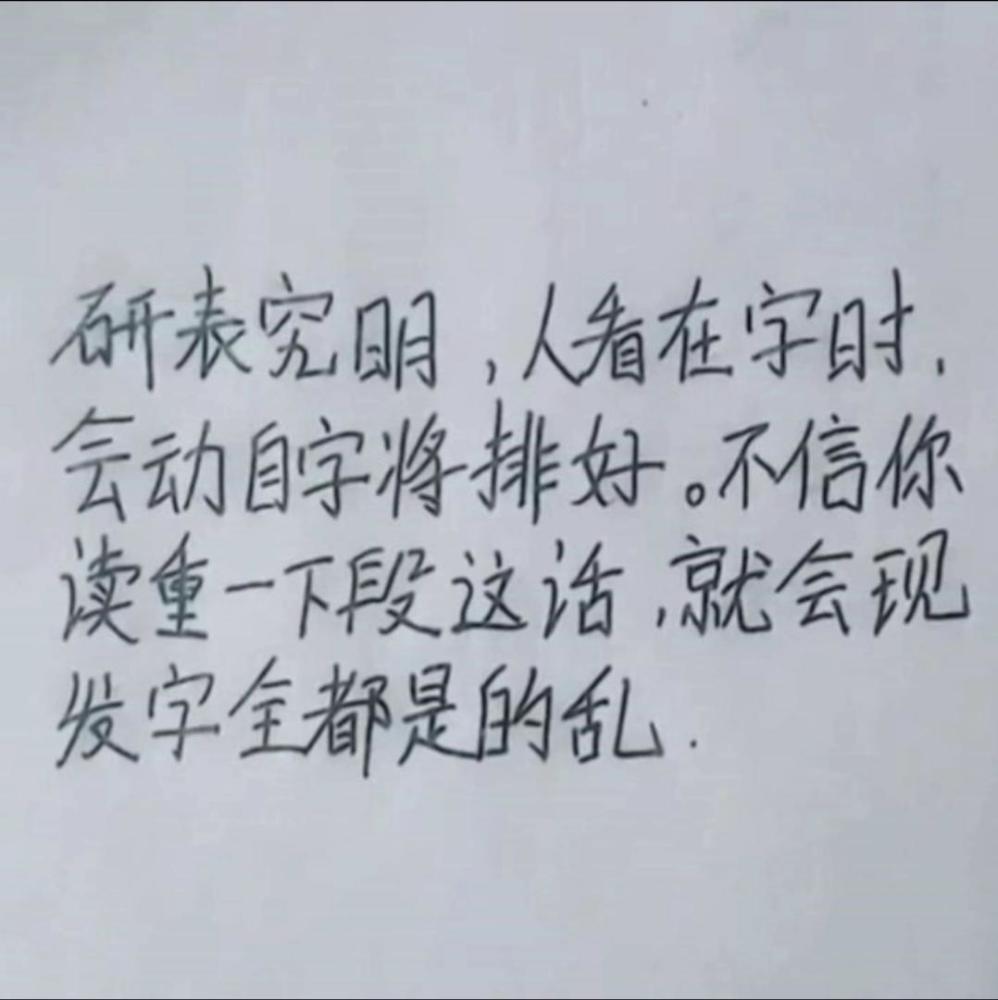 研表究明，人看在字时，
会动自字将排好。不信你
读重一下段这话，就会现
发字全都是的乱．